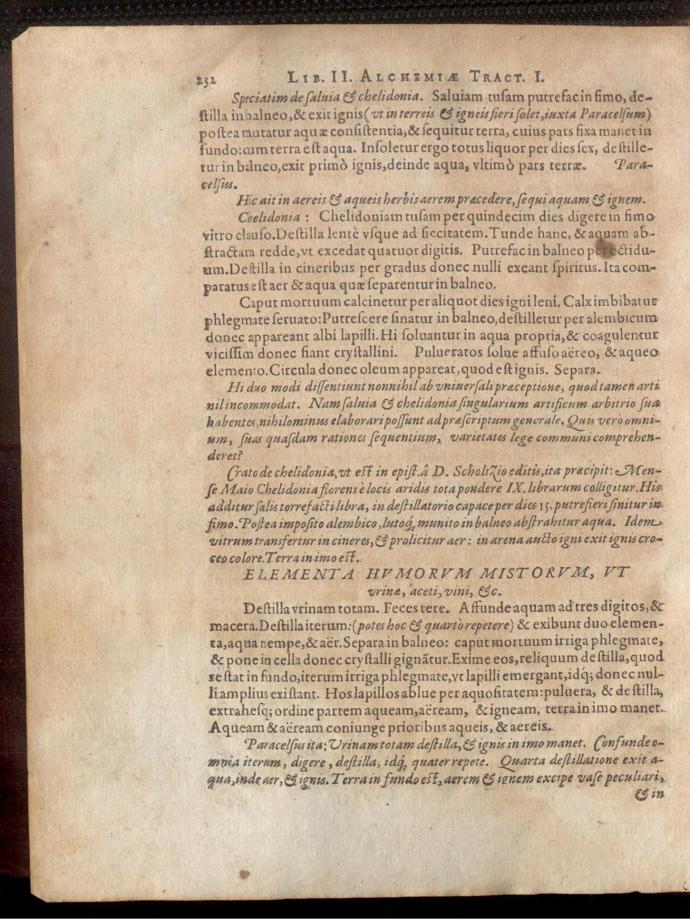 232 LIB. II. ALCHEMIÆ TRACT. I.
Speciatim de ſaluia & chelidonia. Saluiam tuſam putrefac in fimo, de-
ſtilla in balneo, & exit ignis (vt in terreis & igneis fieri ſolet, iuxta Paracelſum)
poſtea mutatur aquæ conſiſtentia, & ſequitur terra, cuius pars fixa manet in
fundo: cum terra eſt aqua. Inſoletur ergo totus liquor per dies ſex, deſtille-
tur in balneo, exit primò ignis, deinde aqua, vltimò pars terræ. Para-
celſus.
Hic ait in aereis & aqueis herbis aerem præcedere, ſequi aquam & ignem.
Chelidonia: Chelidoniam tuſam per quindecim dies digere in fimo
vitro clauſo. Deſtilla lentè vſque ad ſiccitatem. Tunde hanc, & aquam ab-
ſtractam redde, vt excedat quatuor digitis. Putrefac in balneo per octidu-
um. Deſtilla in cineribus per gradus donec nulli exeant ſpiritus. Ita com-
paratus eſt aer & aqua quæ ſeparentur in balneo.
Caput mortuum calcinetur per aliquot dies igni leni. Calx imbibatur
phlegmate ſeruato: Putreſcere ſinatur in balneo, deſtilletur per alembicum
donec appareant albi lapilli. Hi ſoluantur in aqua propria, & coagulentur
viciſſim donec fiant cryſtallini. Pulueratos ſolue affuſo aëreo, & aqueo
elemento. Circula donec oleum appareat, quod eſt ignis. Separa.
Hi duo modi diſſentiunt nonnihil ab vniuerſali præceptione, quod tamen arti
nil incommodat. Nam ſaluia & chelidonia ſingularium artificum arbitrio ſua
habentes, nihilominus elaborari poſſunt ad præſcriptum generale. Quis verò omni-
um, ſuas quaſdam rationes ſequentium, varietates lege communi comprehen-
deret?
Crato de chelidonia, vt eſt in epiſt. â D. Scholtzio editis, ita præcipit: Men-
ſe Maio Chelidonia florens è locis aridis tota pondere IX. librarum colligitur. His
additur ſalis torrefacti libra, in deſtillatorio capace per dies 15. putrefieri ſinitur in
fimo. Poſtea impoſito alembico, lutoq́, munito in balneo abſtrahitur aqua. Idem
vitrum transfertur in cineres, & prolicitur aer: in arena aucto igni exit ignis cro-
ceo colore. Terra in imo eſt.
ELEMENTA HVMORVM MISTORVM, VT
vrinæ, aceti, vini, &c.
Deſtilla vrinam totam. Feces tere. Affunde aquam ad tres digitos, &
macera. Deſtilla iterum: (potes hoc & quartò repetere) & exibunt duo elemen-
ta, aqua nempe, & aër. Separa in balneo: caput mortuum irriga phlegmate,
& pone in cella donec cryſtalli gignãtur. Exime eos, reliquum deſtilla, quod
reſtat in fundo, iterum irriga phlegmate, vt lapilli emergant, idq́; donec nul-
li amplius exiſtant. Hos lapillos ablue per aquoſitatem: puluera, & deſtilla,
extraheſq́; ordine partem aqueam, aëream, & igneam, terra in imo manet.
Aqueam & aëream coniunge prioribus aqueis, & aereis.
Paracelſus ita: Vrinam totam deſtilla, & ignis in imo manet. Confunde o-
mnia iterum, digere, deſtilla, idq́, quater repete. Quarta deſtillatione exit a-
qua, inde aer, & ignis. Terra in fundo eſt, aerem & ignem excipe vaſe peculiari,
& in